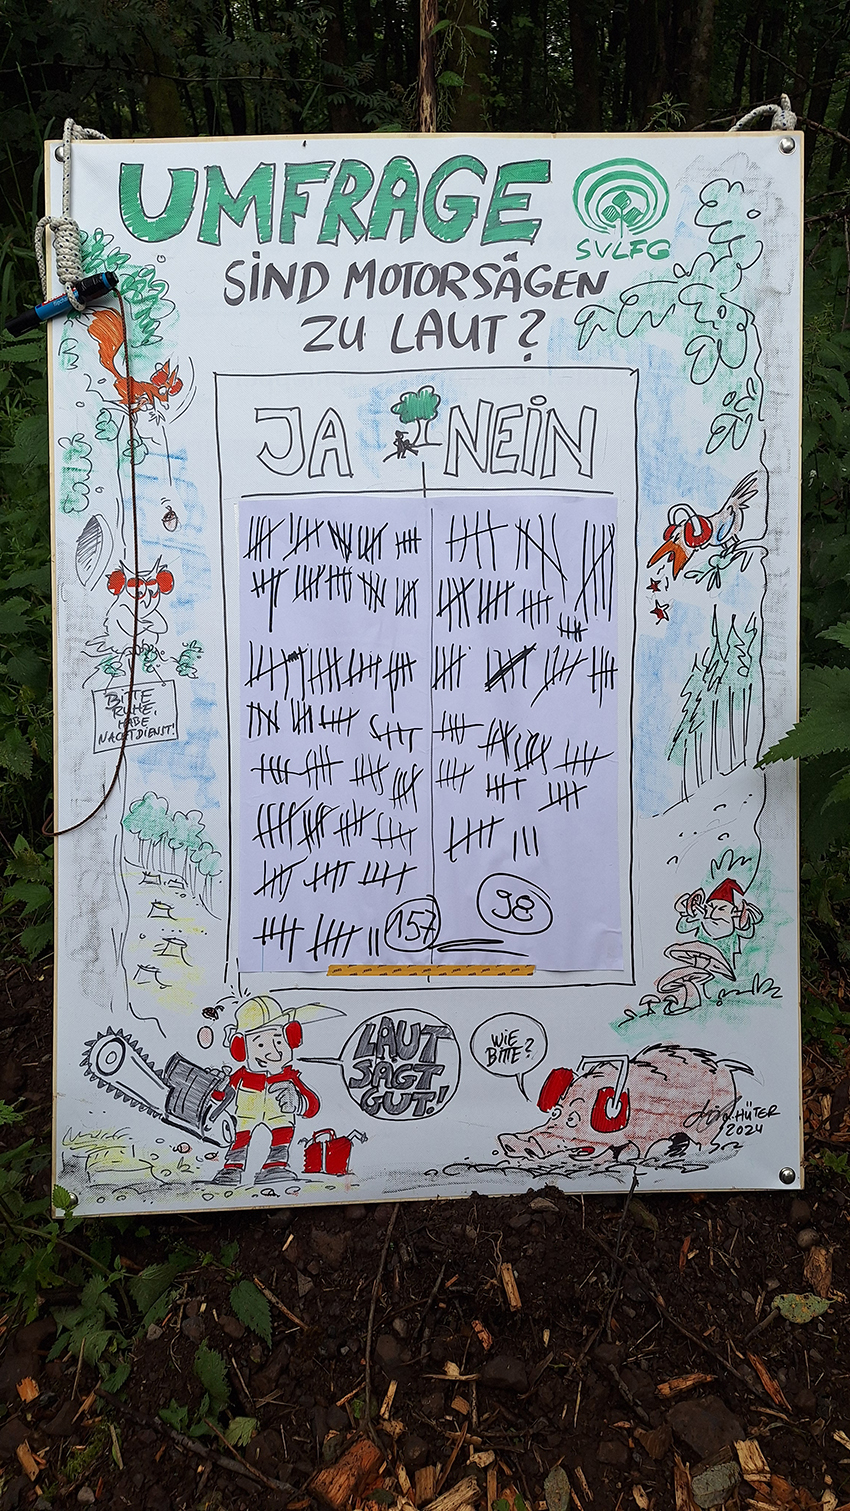 UMFRAGE
SVLFG
SIND MOTORSÄGEN
ZU LAUT?
JA NEIN
BITTE
RUHE,
HABE
NACHTDIENST!
157 98
LAUT
SÄGT
GUT!
WIE
BITTE?
HÜTER
2024